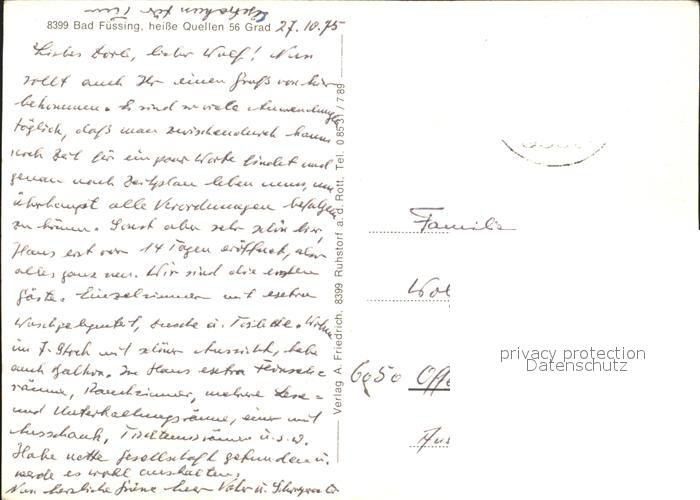 8399 Bad Füssing, heiße Quellen 56 Grad 27.10.75
Liebes Dorle, lieber Wolf! Nun
sollt auch Ihr einen Gruß von hier
bekommen. Es sind so viele Anwendungen
täglich, daß man zwischendurch kaum
noch Zeit für ein paar Worte findet und
genau nach Zeitplan leben muss, um
überhaupt alle Verordnungen befolgen
zu können. Sonst aber sehr schön hier,
Haus erst vor 14 Tagen eröffnet, also
alles ganz neu. Wir sind die ersten
Gäste. Einzelzimmer mit extra
Waschgelegenheit, Dusche u. Toilette. Wohne
im 7. Stock mit schöner Aussicht, habe
auch Balkon. Im Haus extra Fernseh=
räume, Rauchzimmer, mehrere Lese=
und Unterhaltungsräume, einer mit
Ausschank, Tischtennisräume u.s.w.
Habe nette Gesellschaft gefunden u.
werde es wohl aushalten.
Nun herzliche Grüße Euer Vater u.
Verlag A. Friedrich, 8399 Ruhstorf a. d. Rott, Tel. 0 85 31 / 7 89
Familie
Wol
6050 Offe
privacy protection
Datenschutz